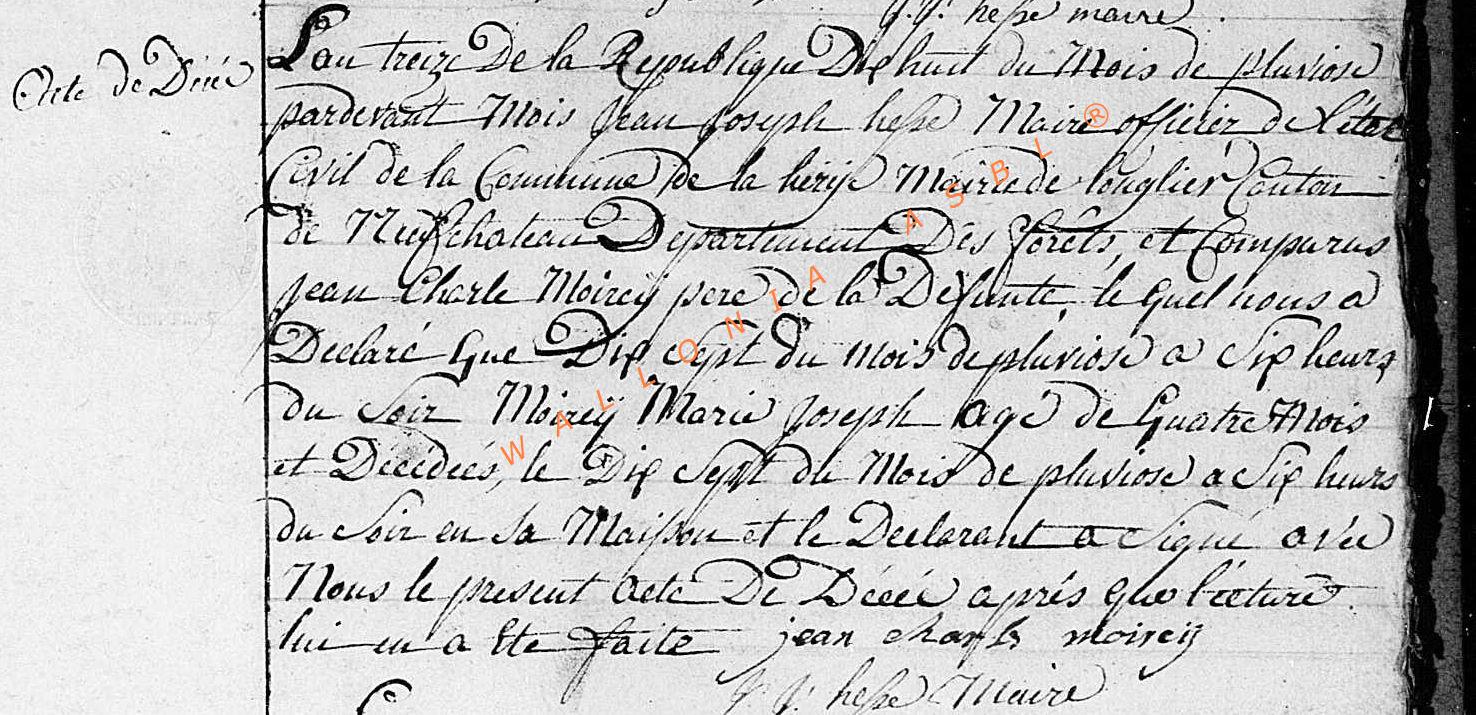 J. J. hesse maire.
Acte de Décé
L'an treize De la Republique Dix huit du Mois de pluviose
pardevant Mois Jean Joseph hesse Maire officier de l'état
Civil de la Commune De la hérije Mairie de longlier Canton
de Neufchateau Departement Des forêts, et Comparus
Jean Charle Moireÿ pere de la Defunte, le quel nous a
Declaré Que Dix Sept Du mois de pluviose a Six heurs
du Soir Moireÿ Marie Joseph agé de Quatre Mois
et Décédées, le Dix Sept du Mois de pluviose a Six heurs
du Soir en sa Maison et le Declarant a Signé avec
Nous le present acte De Décéé après que l'ecture
lui en a Eté faite jean charls moireÿ
J. J. hesse Maire
WALLONIA ASBL ®